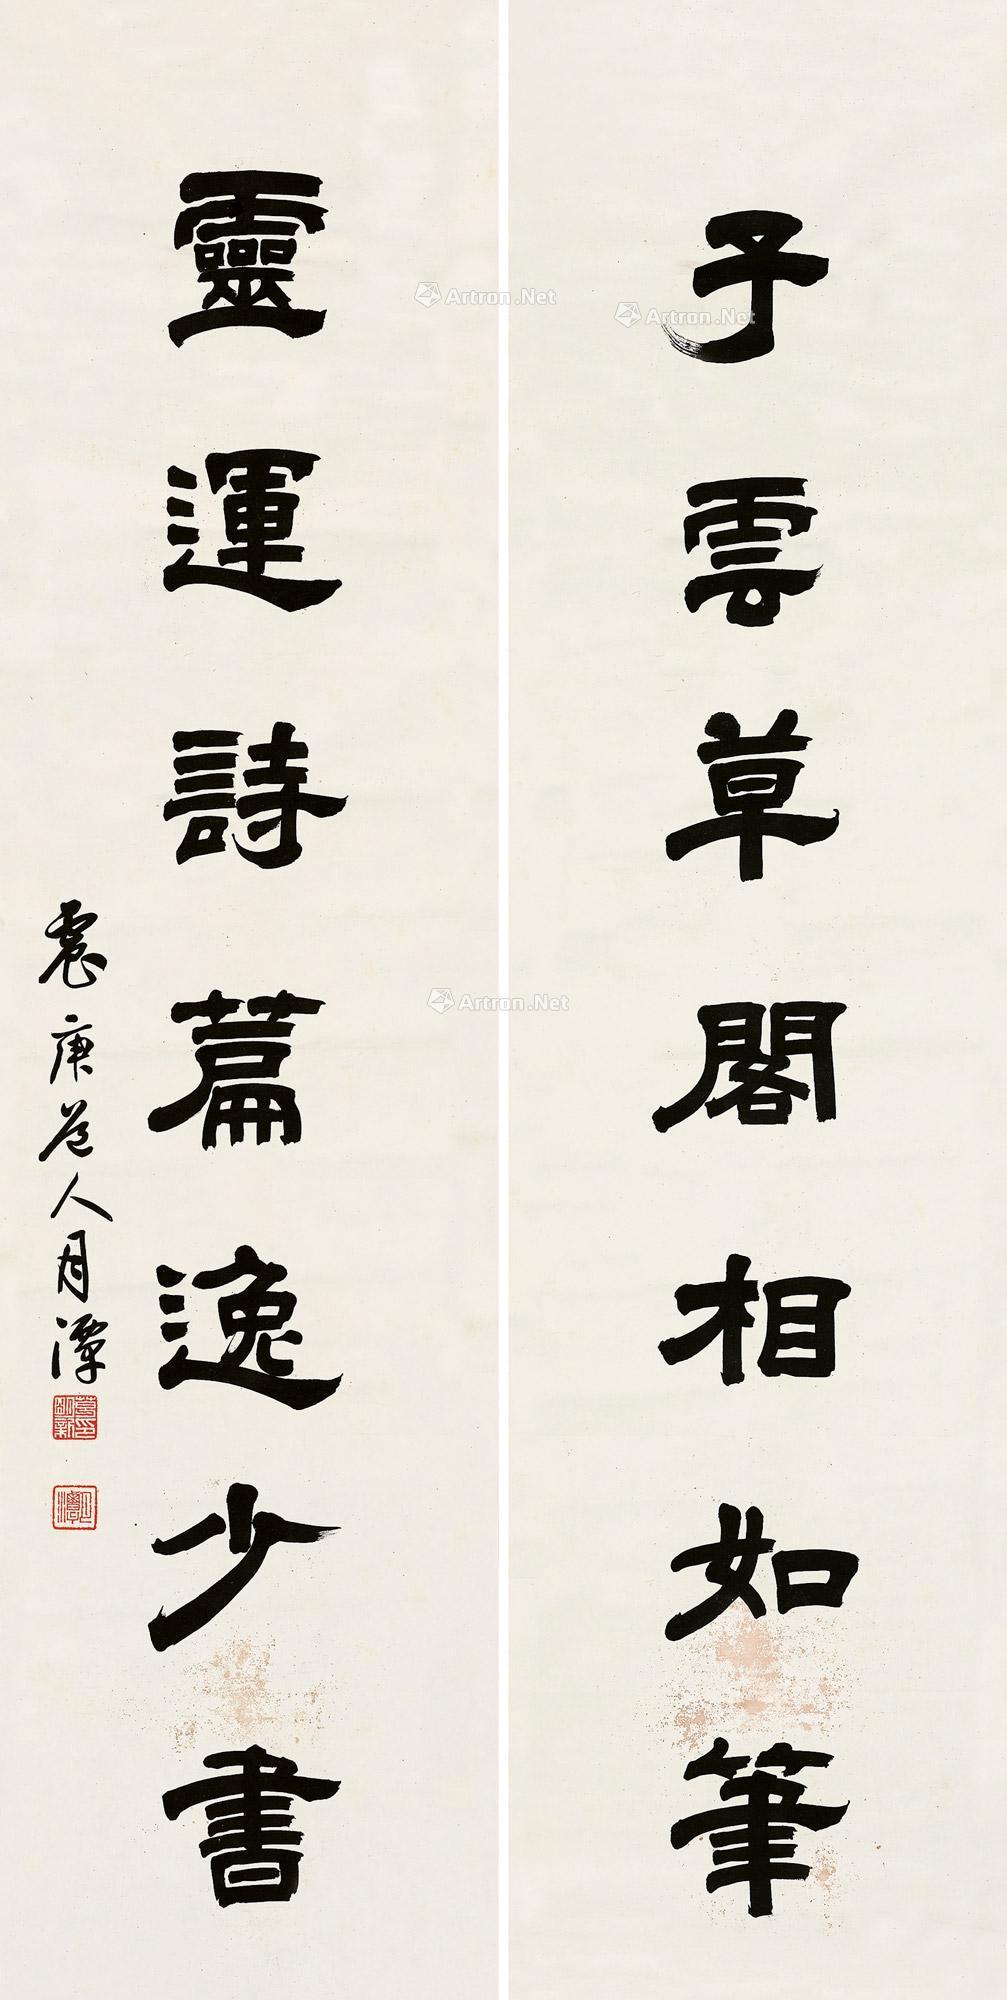 子雲草閣相如筆
靈運詩篇逸少書
震庚道人月潭
Artron.Net
Artron.Net
Artron.Net